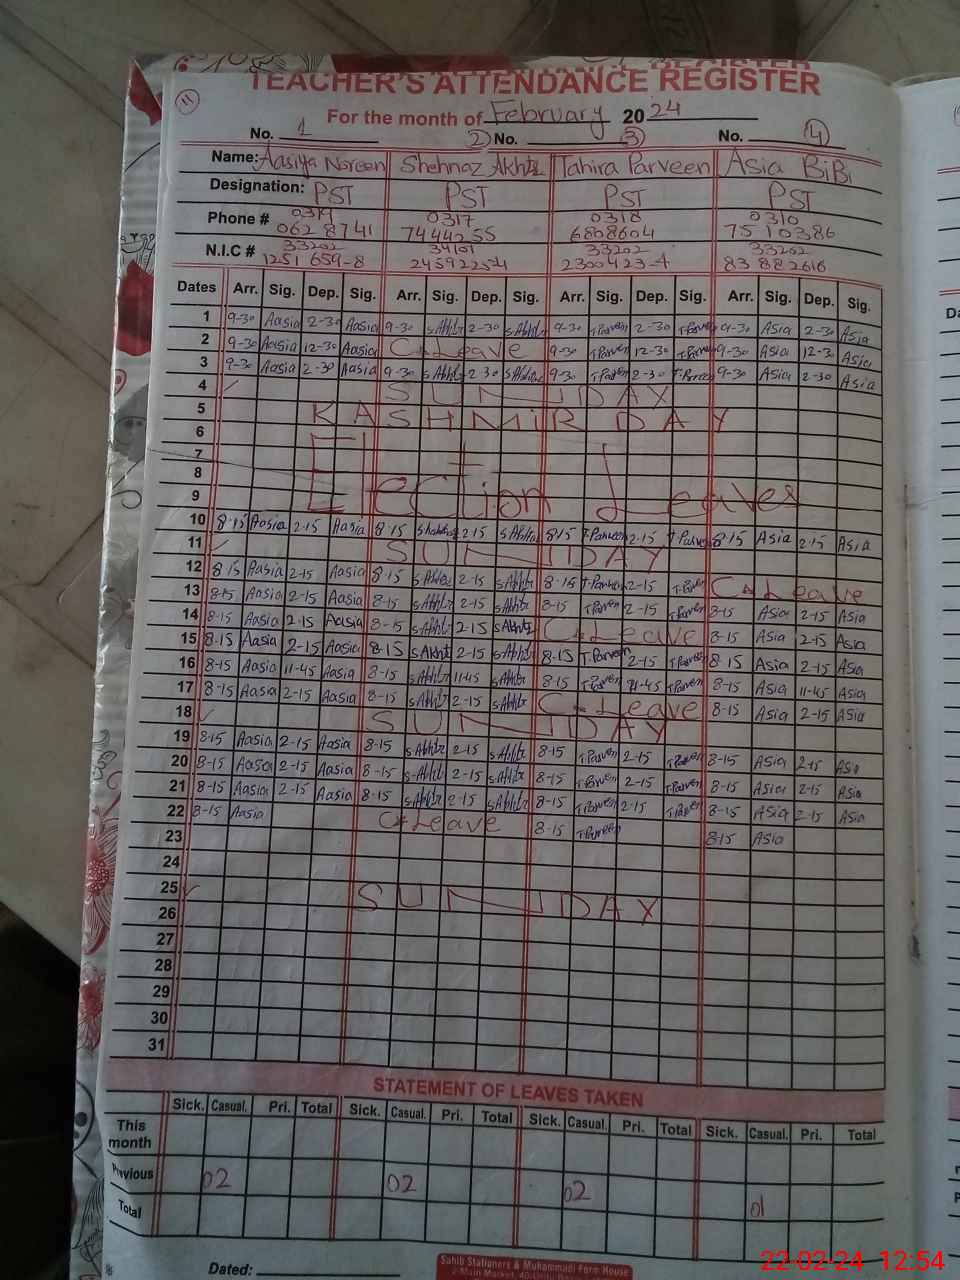 TEACHER'S ATTENDANCE REGISTER
11
For the month of February 2024
No. 1 2 No. 3 No. 4
Name: Aasiya Noreen Shehnaz Akhtr Tahira Parveen Asia BiBi
Designation: PST PST PST PST
Phone # 0319 0317 0318 0310
0628741 7444255 6808604 7510386
N.I.C # 33202 34101 33202 33202
1251659-8 2459225-4 2300423-4 83882616
Dates Arr. Sig. Dep. Sig. Arr. Sig. Dep. Sig. Arr. Sig. Dep. Sig. Arr. Sig. Dep. Sig.
1 9-30 Aasia 2-30 Aasia 9-30 S Akhtr 2-30 S Akhtr 9-30 T.Parveen 2-30 T.Parveen 9-30 Asia 2-30 Asia
2 9-30 Aasia 12-30 Aasia C.Leave 9-30 T.Parveen 12-30 T.Parveen 9-30 Asia 12-30 Asia
3 9-30 Aasia 2-30 Aasia 9-30 S Akhtr 2-30 S Akhtr 9-30 T.Parveen 2-30 T.Parveen 9-30 Asia 2-30 Asia
4 SUNDAY
5 KASHMIR DAY
6
7
8 Election Leaves
9
10 8-15 Aasia 2-15 Aasia 8-15 2-15 S Akhtr 8-15 T.Parveen 2-15 T.Parveen 8-15 Asia 2-15 Asia
11 SUNDAY
12 8-15 Aasia 2-15 Aasia 8-15 S Akhtr 2-15 S Akhtr 8-15 T.Parveen 2-15 T.Parveen C.Leave
13 8-15 Aasia 2-15 Aasia 8-15 S Akhtr 2-15 S Akhtr 8-15 T.Parveen 2-15 T.Parveen 8-15 Asia 2-15 Asia
14 8-15 Aasia 2-15 Aasia 8-15 S Akhtr 2-15 S Akhtr C.Leave 8-15 Asia 2-15 Asia
15 8-15 Aasia 2-15 Aasia 8-15 S Akhtr 2-15 S Akhtr 8-15 T.Parveen 2-15 T.Parveen 8-15 Asia 2-15 Asia
16 8-15 Aasia 11-45 Aasia 8-15 S Akhtr 11-45 S Akhtr 8-15 T.Parveen 11-45 T.Parveen 8-15 Asia 11-45 Asia
17 8-15 Aasia 2-15 Aasia 8-15 S Akhtr 2-15 S Akhtr C.Leave 8-15 Asia 2-15 Asia
18 SUNDAY
19 8-15 Aasia 2-15 Aasia 8-15 S Akhtr 2-15 S Akhtr 8-15 T.Parveen 2-15 T.Parveen 8-15 Asia 2-15 Asia
20 8-15 Aasia 2-15 Aasia 8-15 S Akhtr 2-15 S Akhtr 8-15 T.Parveen 2-15 T.Parveen 8-15 Asia 2-15 Asia
21 8-15 Aasia 2-15 Aasia 8-15 S Akhtr 2-15 S Akhtr 8-15 T.Parveen 2-15 T.Parveen 8-15 Asia 2-15 Asia
22 8-15 Aasia C.Leave 8-15 T.Parveen 8-15 Asia
23
24
25 SUNDAY
26
27
28
29
30
31
STATEMENT OF LEAVES TAKEN
Sick. Casual. Pri. Total Sick. Casual. Pri. Total Sick. Casual. Pri. Total Sick. Casual. Pri. Total
This month
Previous 02 02 02 01
Total
Dated:
Sahib Stationers & Muhammadi Form House
2-Main Market, 40-Urdu
22-02-24 12:54